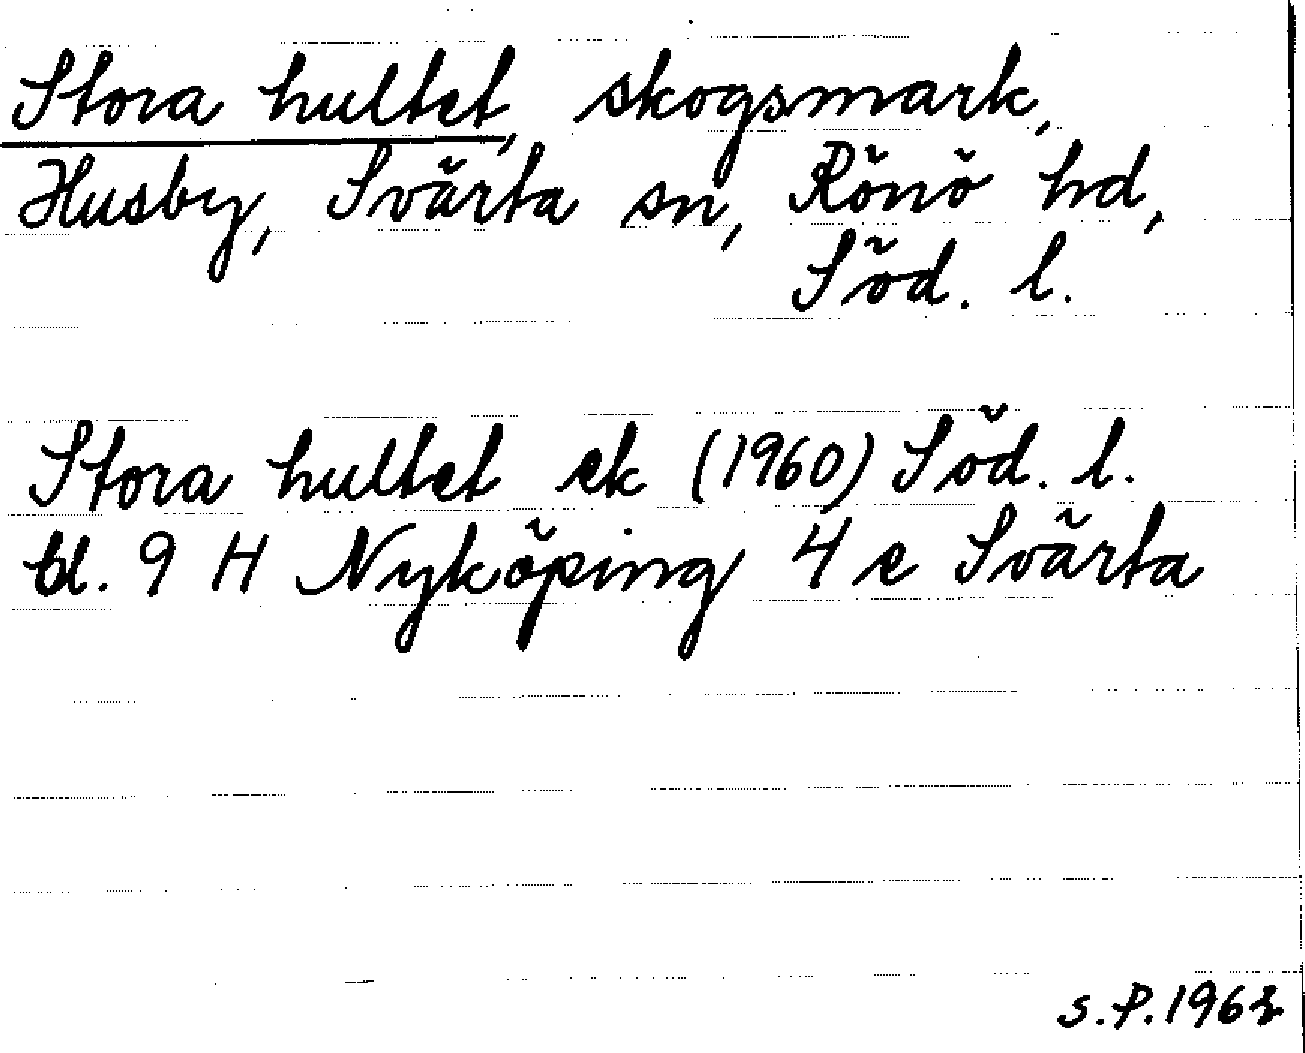 Stora hultet, skogsmark,
Husby, Svärta sn, Rönö hd,
Söd. l.
Stora hultet ek (1960) Söd. l.
bl. 9 H Nyköping 4 e Svärta
S.P. 1962